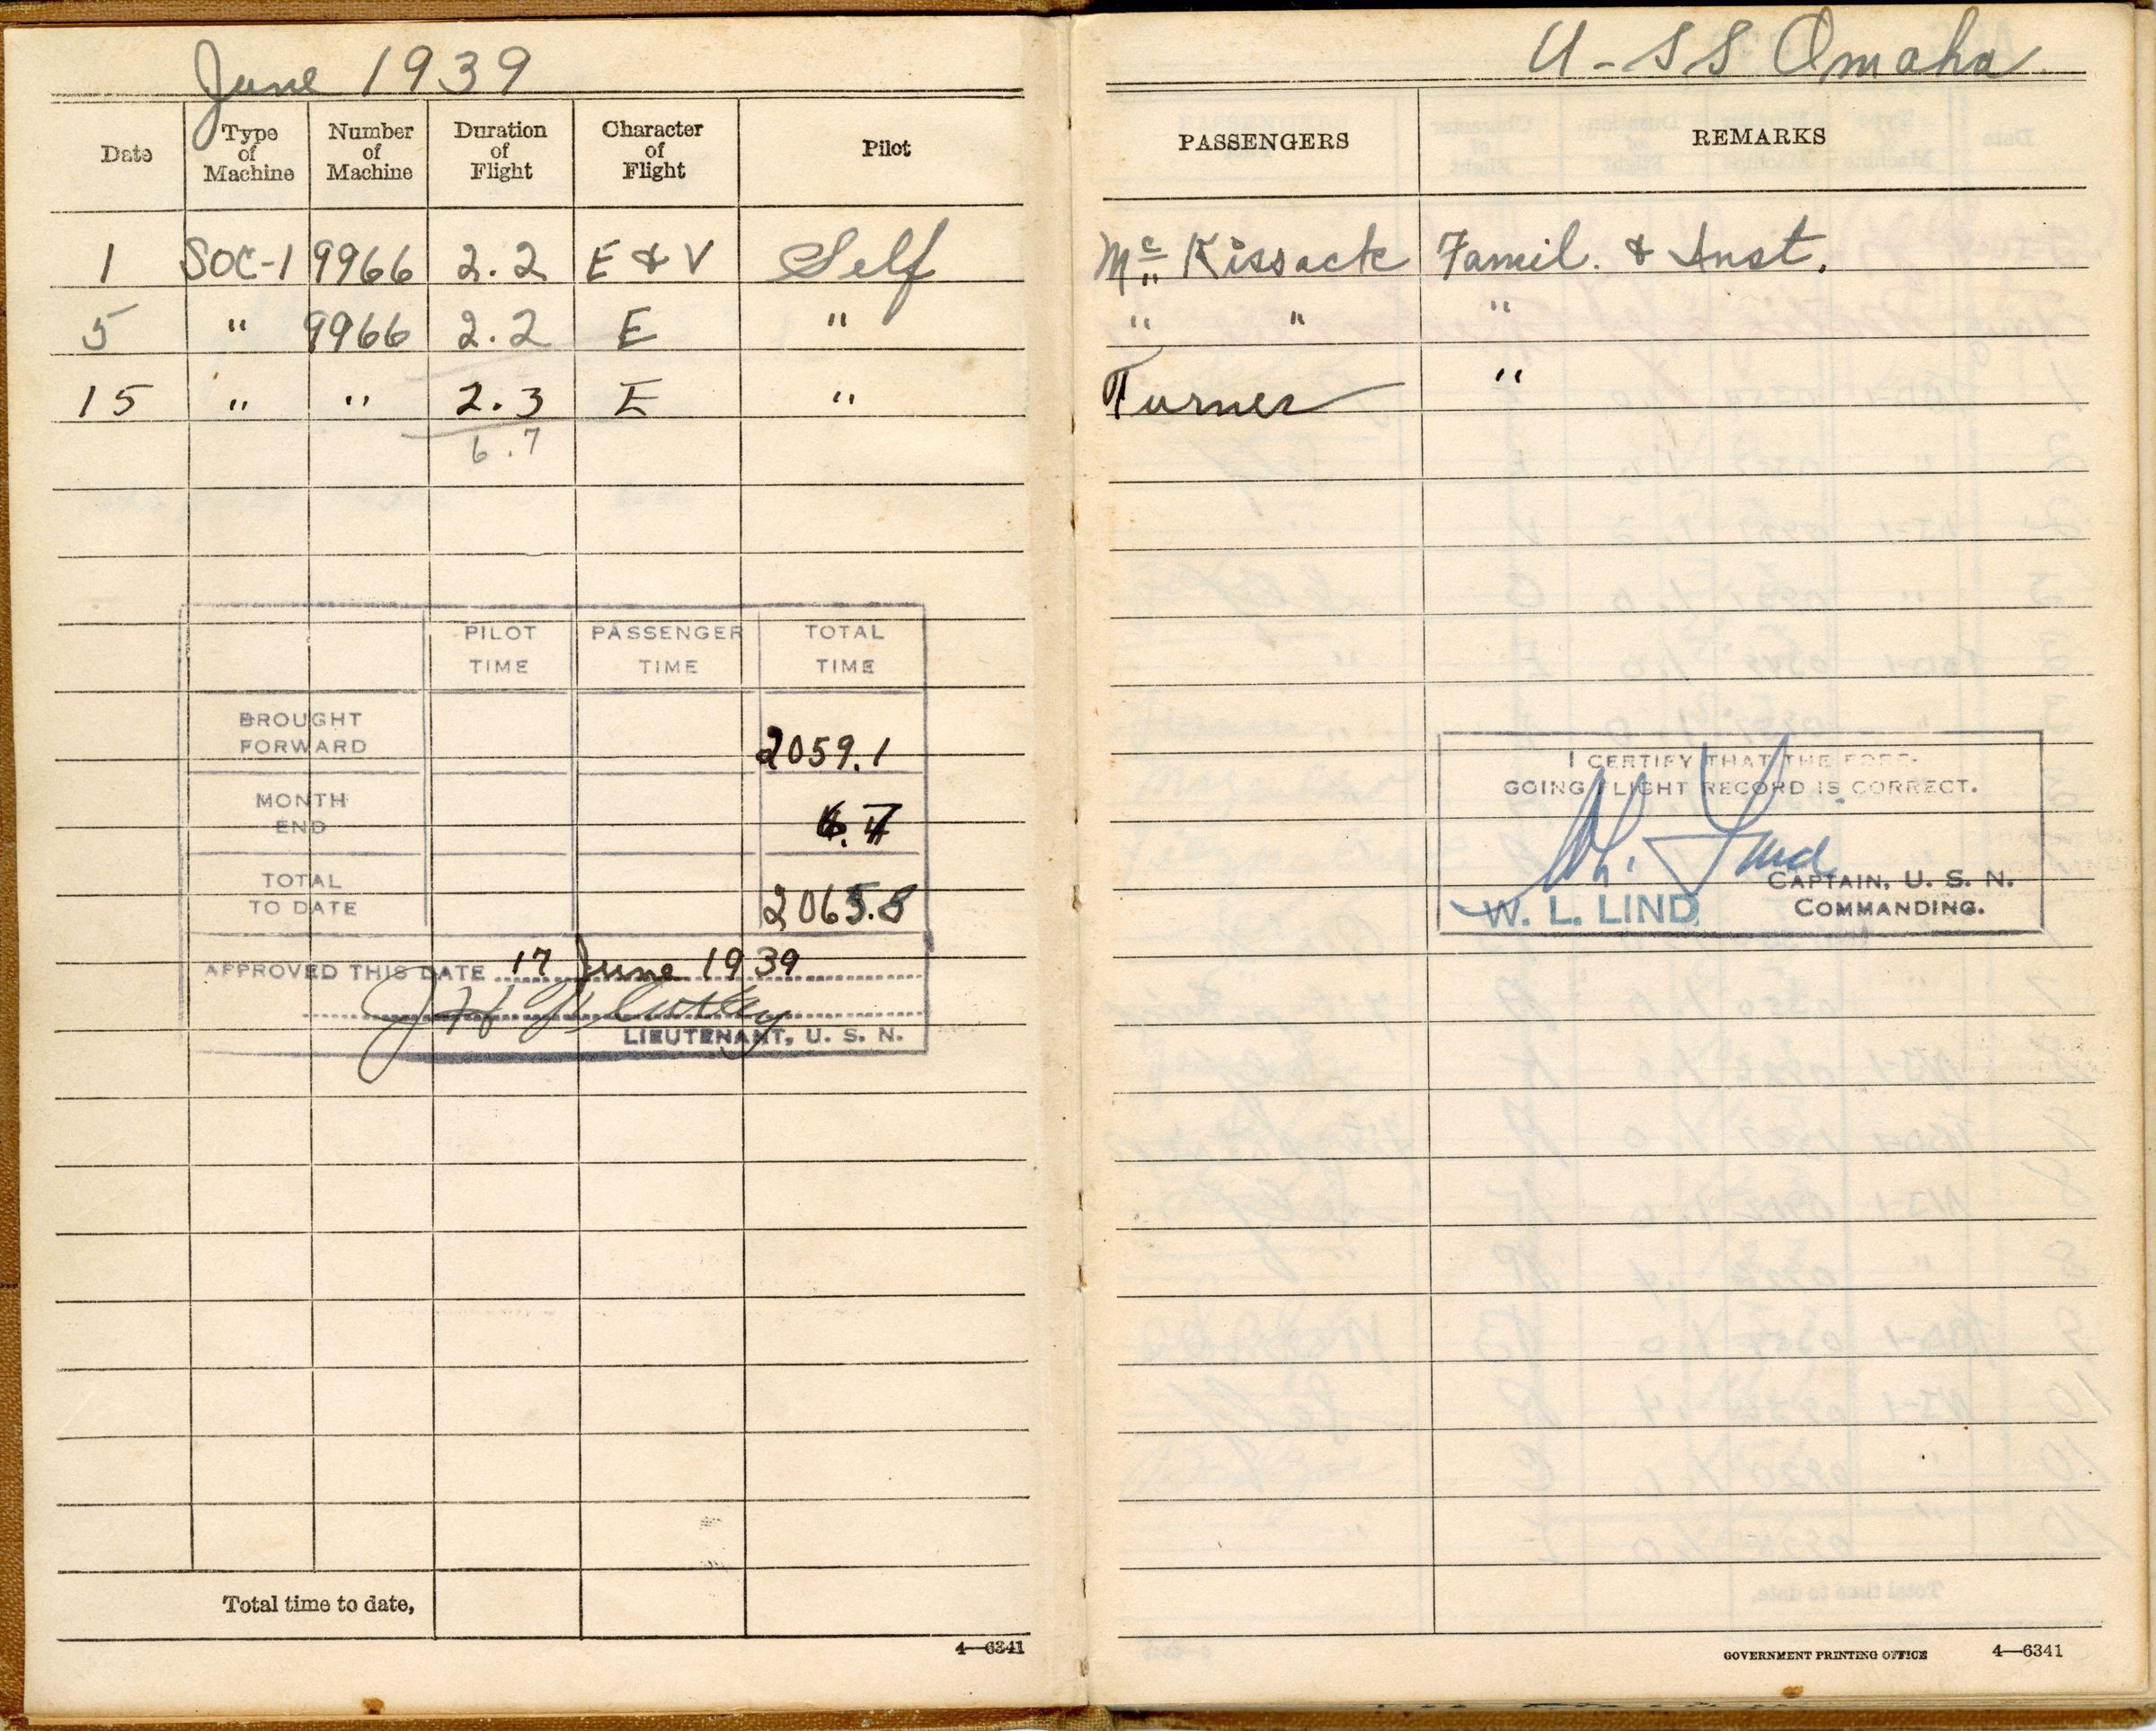 June 1939
Date Type of Machine Number of Machine Duration of Flight Character of Flight Pilot
1 SOC-1 9966 2.2 E & V Self
5 " 9966 2.2 E "
15 " " 2.3 E "
6.7
PILOT TIME PASSENGER TIME TOTAL TIME
BROUGHT FORWARD 2059.1
MONTH END 6.7
TOTAL TO DATE 2065.8
APPROVED THIS DATE 17 June 1939
LIEUTENANT, U. S. N.
Total time to date,
4—6341
U-SS Omaha
PASSENGERS REMARKS
Mc Kissack Famil. & Inst.
" " "
Turner "
I CERTIFY THAT THE FORE-
GOING FLIGHT RECORD IS CORRECT.
W. L. Lind
CAPTAIN, U. S. N.
W. L. LIND COMMANDING.
GOVERNMENT PRINTING OFFICE 4—6341